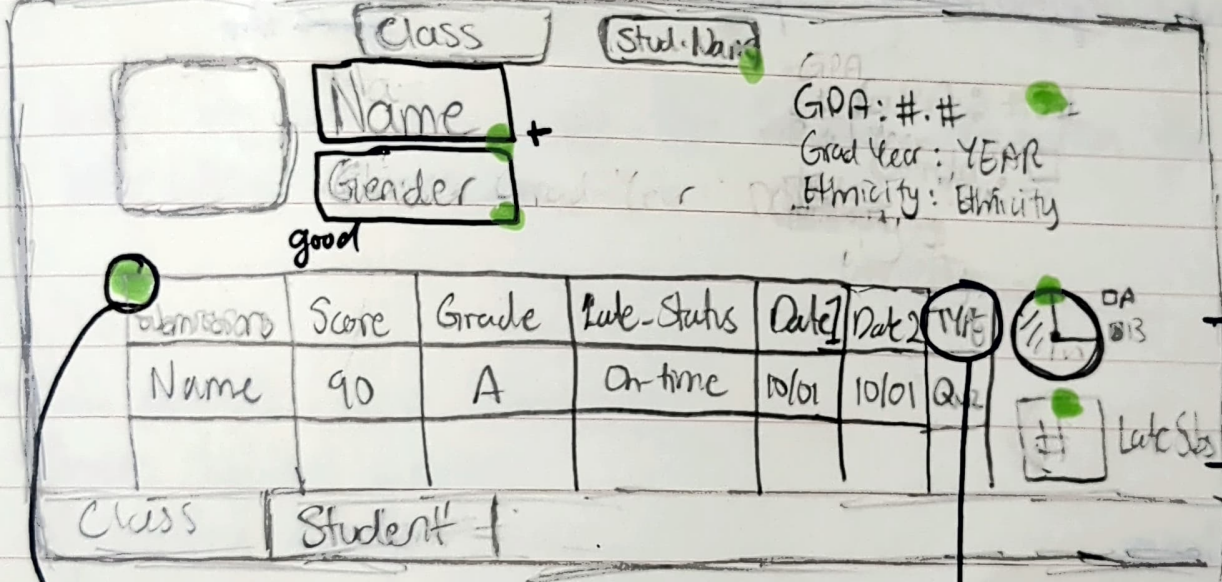 Class
Stud. Name
Name +
Gender
good
GPA
GPA: #.#
Grad Year: YEAR
Ethnicity: Ethnicity
Submissions Score Grade Late_Status Date1 Date2 TYPE
Name 90 A On-time 10/01 10/01 Quiz
A
B
# Late Subs
Class Student